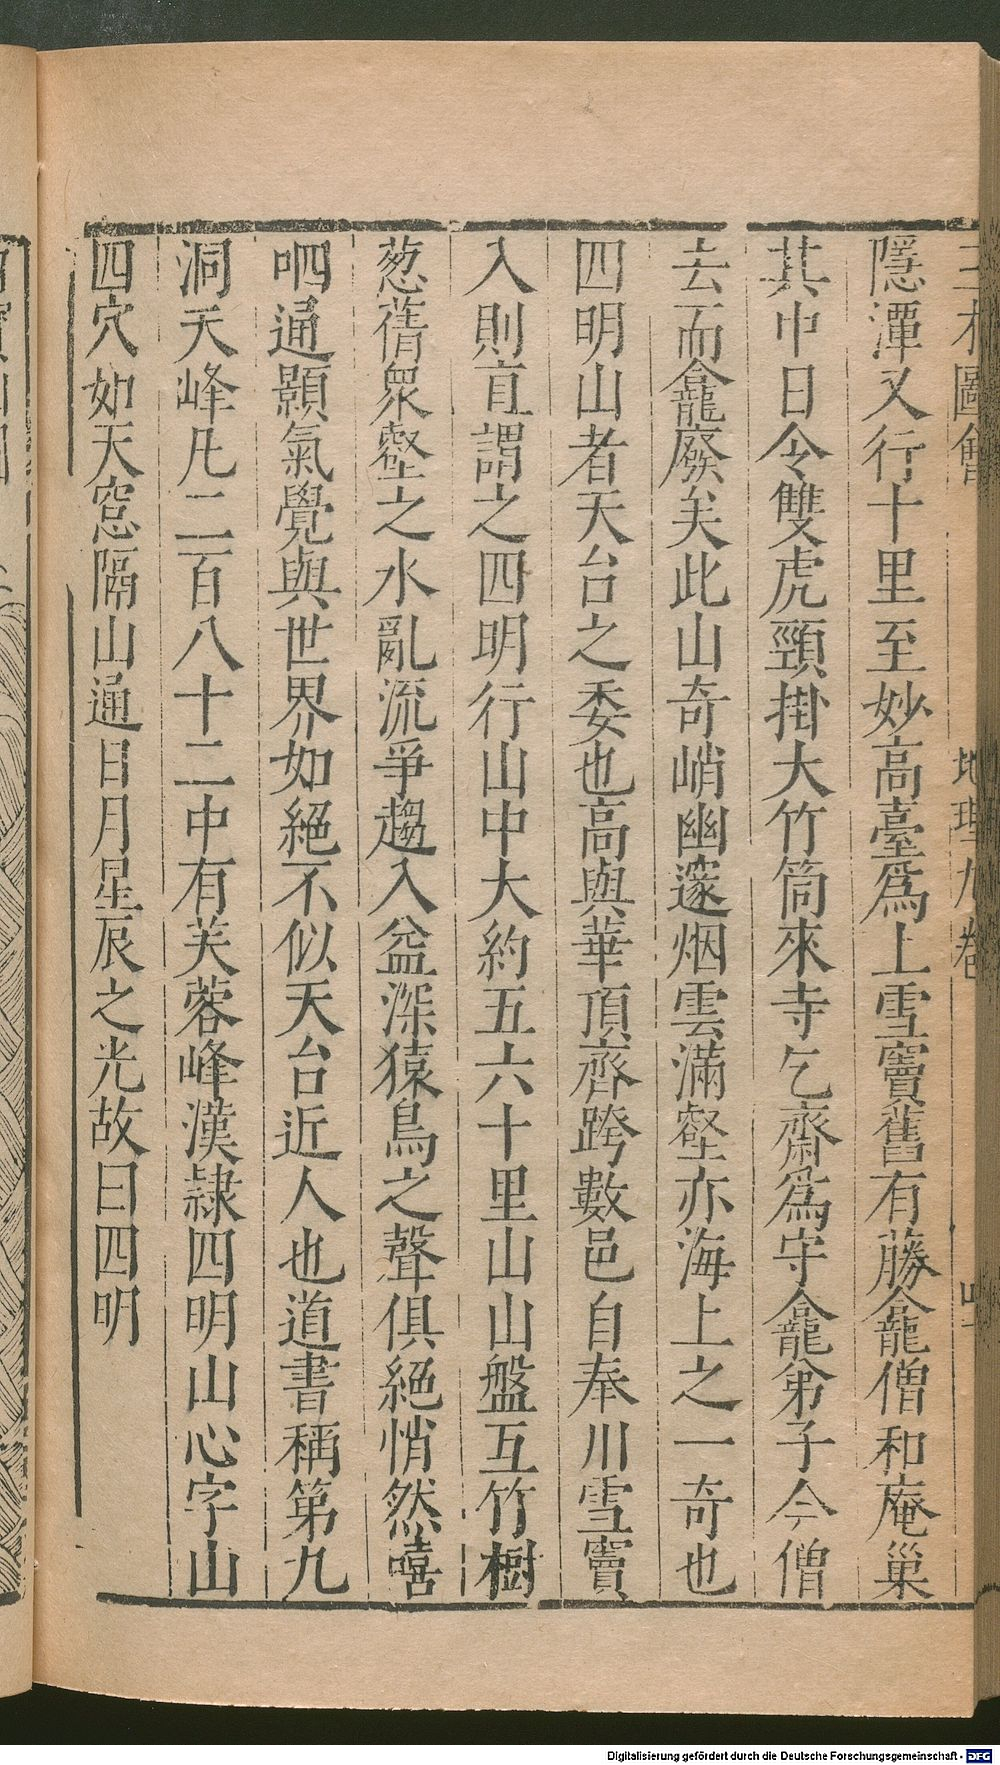 三才圖會 地理九卷
隱潭又行十里至妙高臺爲上雪竇舊有藤龕僧和庵巢
其中日令雙虎頸掛大竹筒來寺乞齋爲守龕弟子今僧
去而龕廢矣此山奇峭幽邃烟雲滿壑亦海上之一奇也
四明山者天台之委也高與華頂齊跨數邑自奉川雪竇
入則直謂之四明行山中大約五六十里山山盤互竹樹
葱蒨衆壑之水亂流爭趨入盆深猿鳥之聲俱絕悄然嘻
呬通顥氣覺與世界如絕不似天台近人也道書稱第九
洞天峰凡二百八十二中有芙蓉峰漢隸四明山心字山
四穴如天窓隔山通日月星辰之光故曰四明
Digitalisierung gefördert durch die Deutsche Forschungsgemeinschaft - DFG